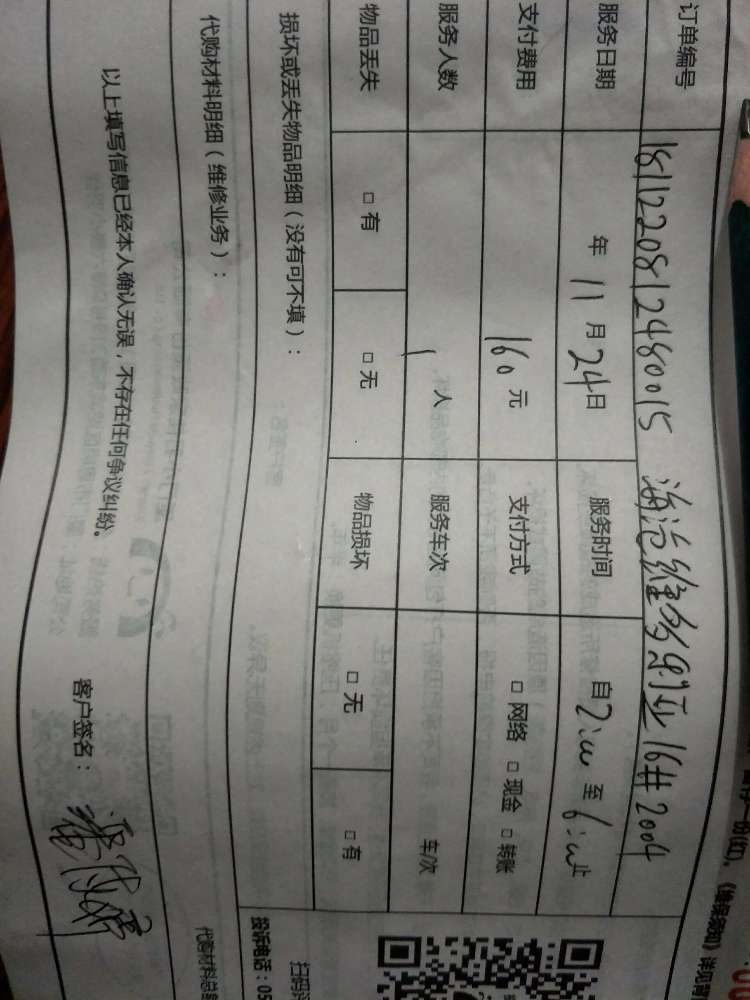 订单编号 1811220812480015 海沧维多创业16#2004
服务日期 年 11 月 24日 服务时间 自2:00 至6:00止
支付费用 160元 支付方式 □网络 □现金 □转账
服务人数 1人 服务车次 车/次
物品丢失 □有 □无 物品损坏 □无 □有
损坏或丢失物品明细(没有可不填):
代购材料明细(维修业务):
以上填写信息已经本人确认无误,不存在任何争议纠纷。
客户签名:
投诉电话:05
代购材料总